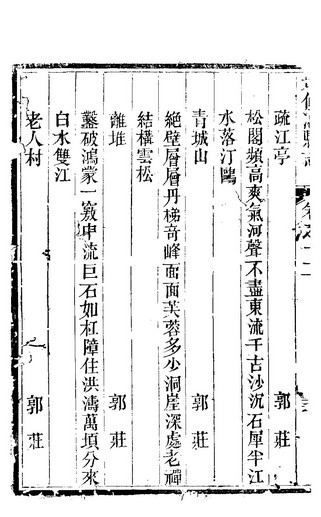 疏江亭　郭莊
松閣頻高爽氣河聲不盡東流千古沙沉石犀半江
水落汀鷗
青城山　郭莊
絶壁層層丹梯奇峰面面芙蓉多少洞崖深處老禪
結構雲松
離堆　郭莊
鑿破鴻蒙一竅中流巨石如杠障住洪濤萬頃分來
白水雙江
老人村　郭莊